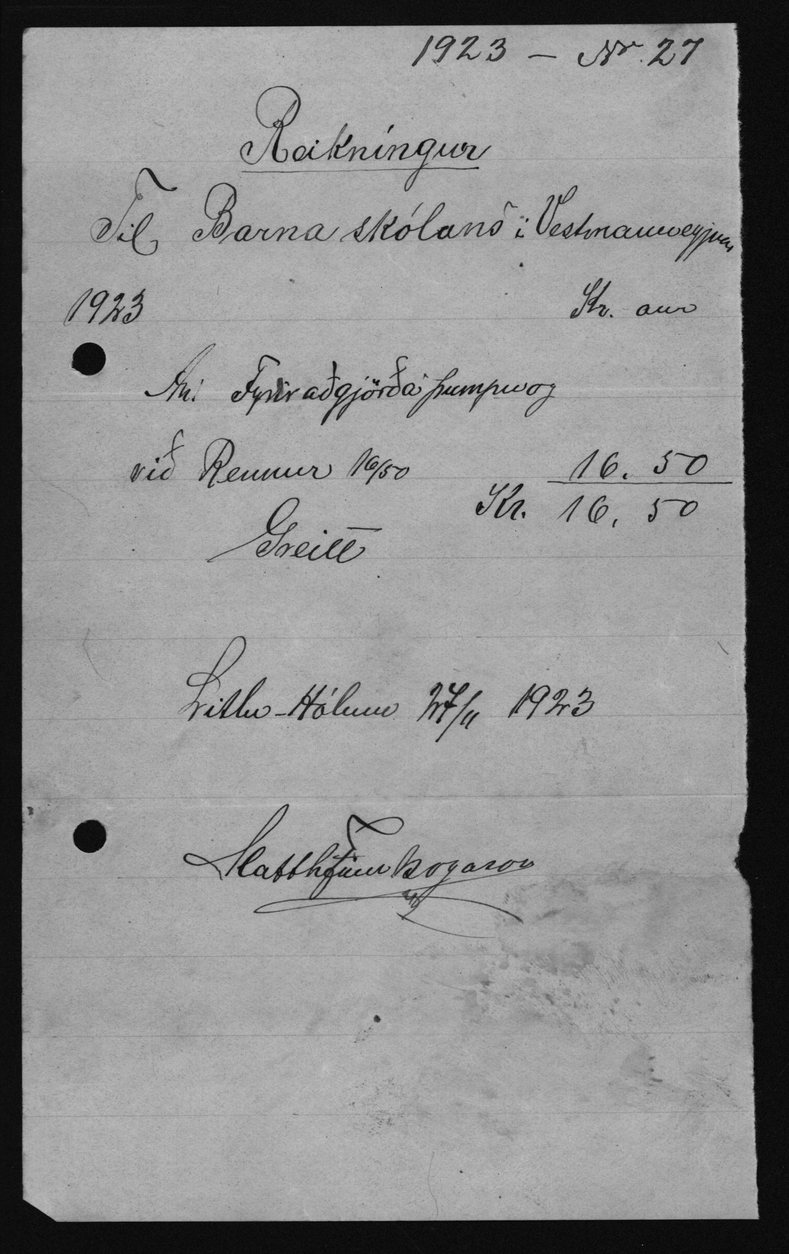 1923 – Nr. 27
Reikníngur
Til Barna skólans í Vestmannaeyjum
1923 Kr. aur
Fyrir aðgjörð á pumpu og
við Rennur 16/50 16. 50
Kr. 16. 50
Greitt
Litlu-Hólum 27/11 1923
Matthías Bogason